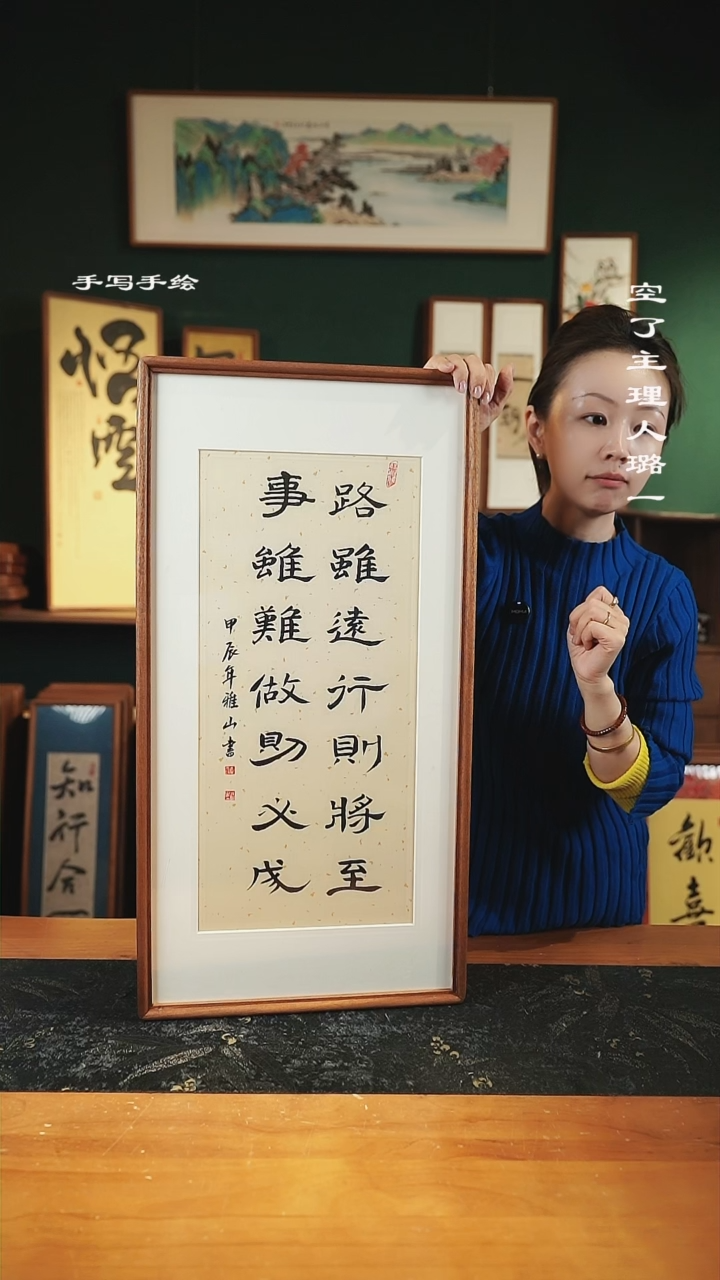 手写手绘
空了主理人璐一
路雖遠行則將至
事雖難做則必成
甲辰年雅山書
悟空
知行合一
歡喜